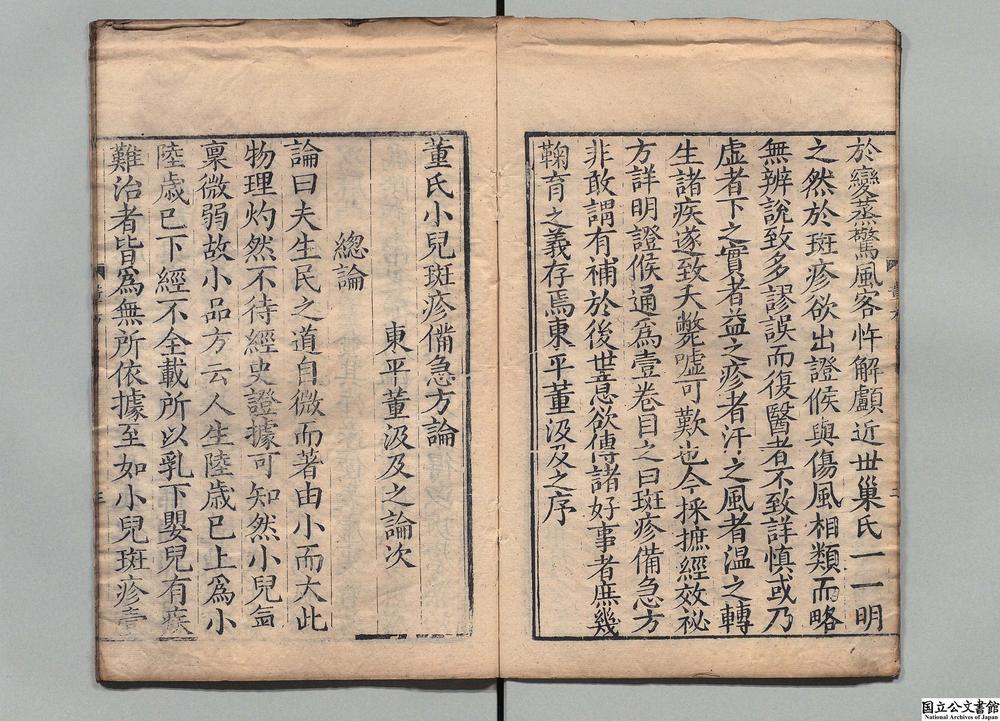 於變蒸驚風客忤解顱近世巢氏一一明
之然於斑疹欲出證候與傷風相類而略
無辨說致多謬誤而復醫者不致詳慎或乃
虛者下之實者益之疹者汗之風者溫之轉
生諸疾遂致夭斃噓可歎也今採摭經效祕
方詳明證候通爲壹卷目之曰斑疹備急方
非敢謂有補於後世意欲傳諸好事者庶幾
鞠育之義存焉東平董汲及之序
董氏小兒斑疹備急方論
東平董汲及之論次
總論
論曰夫生民之道自微而著由小而大此
物理灼然不待經史證據可知然小兒氣
稟微弱故小品方云人生陸歲已上爲小
陸歲已下經不全載所以乳下嬰兒有疾
難治者皆爲無所依據至如小兒斑疹壹
国立公文書館
National Archives of Japan